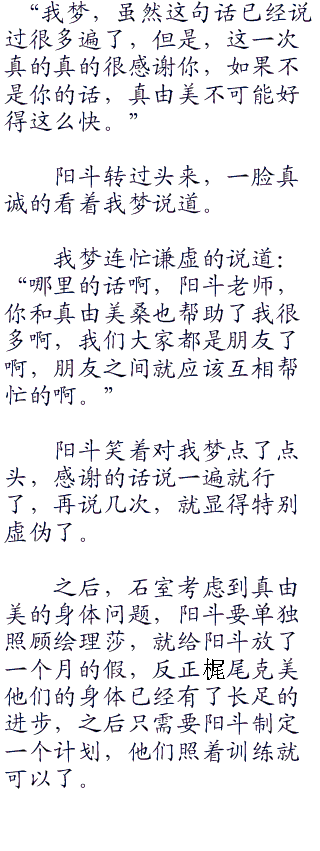 “我梦，虽然这句话已经说
过很多遍了，但是，这一次
真的真的很感谢你，如果不
是你的话，真由美不可能好
得这么快。”
阳斗转过头来，一脸真
诚的看着我梦说道。
我梦连忙谦虚的说道：
“哪里的话啊，阳斗老师，
你和真由美桑也帮助了我很
多啊，我们大家都是朋友了
啊，朋友之间就应该互相帮
忙的啊。”
阳斗笑着对我梦点了点
头，感谢的话说一遍就行
了，再说几次，就显得特别
虚伪了。
之后，石室考虑到真由
美的身体问题，阳斗要单独
照顾绘理莎，就给阳斗放了
一个月的假，反正梶尾克美
他们的身体已经有了长足的
进步，之后只需要阳斗制定
一个计划，他们照着训练就
可以了。